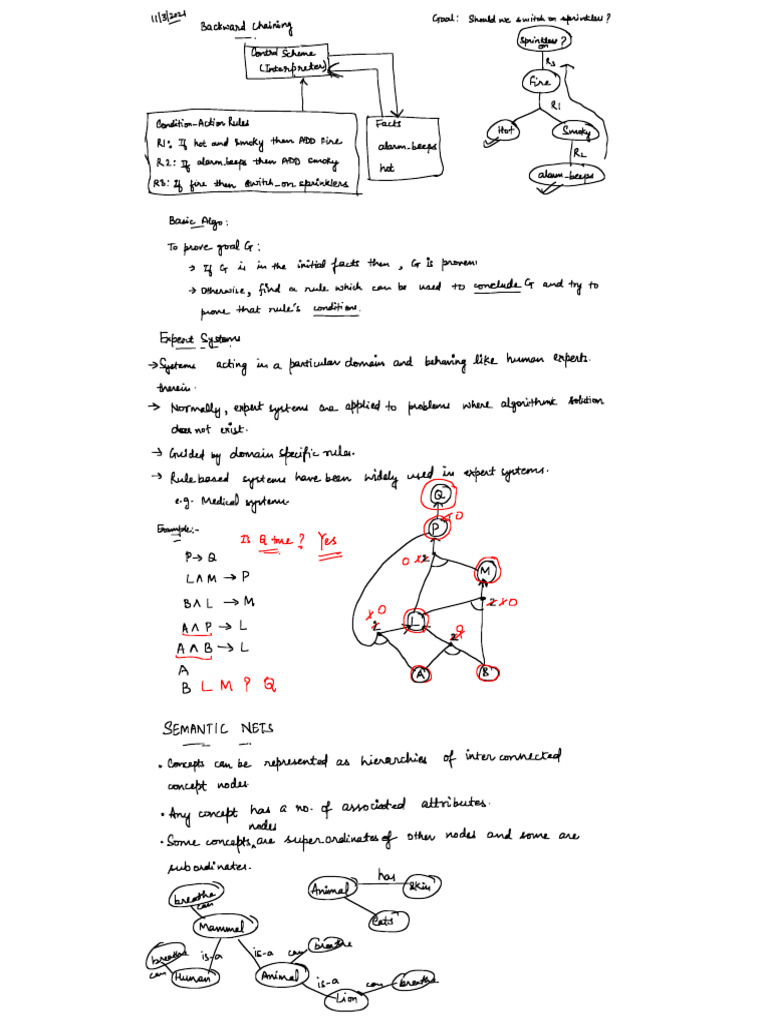 11/3/2021
Backward Chaining
Goal: Should we switch on sprinklers?
Control Scheme
(Interpreter)
Condition-Action Rules
R1: If hot and smoky then ADD fire
R2: If alarm_beeps then ADD smoky
R3: If fire then switch_on_sprinklers
Facts
alarm_beeps
hot
Sprinklers?
on
R3
Fire
R1
Hot
Smoky
R2
alarm_beeps
Basic Algo:
To prove goal G:
→ If G is in the initial facts then, G is proven.
→ Otherwise, find a rule which can be used to conclude G and try to
prove that rule's conditions.
Expert Systems
→ Systems acting in a particular domain and behaving like human experts
therein.
→ Normally, expert systems are applied to problems where algorithmic solution
does not exist.
→ Guided by domain specific rules.
→ Rule based systems have been widely used in expert systems.
e.g. Medical systems.
Example:-
Is Q true? Yes
P → Q
L ∧ M → P
B ∧ L → M
A ∧ P → L
A ∧ B → L
A
B L M P Q
Q
P
0
0 2
M
2 0
0
2
L
0
2
A
B
SEMANTIC NETS
• Concepts can be represented as hierarchies of inter connected
concept nodes.
• Any concept has a no. of associated attributes.
nodes
• Some concepts are superordinates of other nodes and some are
subordinates.
breathe
can
Mammal
is-a
is-a
breathe
can
Human
Animal
can
breathe
is-a
Lion
can
breathe
Animal
has
Skin
Eats